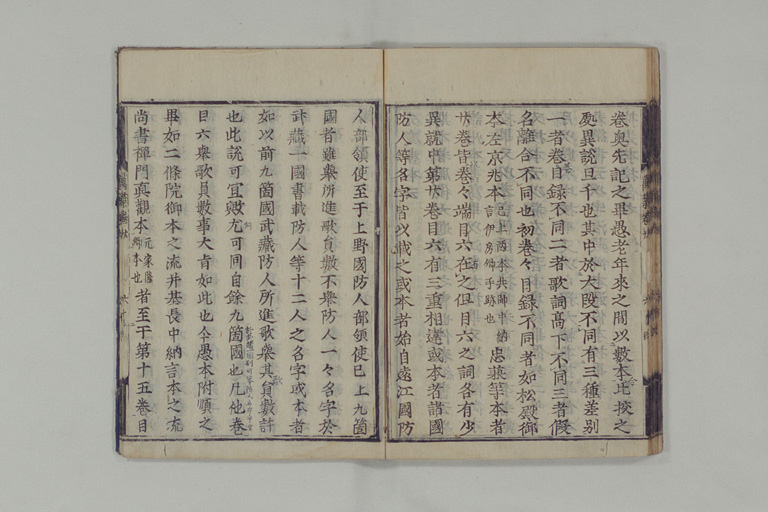 卷奥先記之畢愚老年來之間以數本比挍之
處異説且千也其中於大段不同有三種差別
一者卷目録不同二者歌詞髙下不同三者假
名離合不同也初卷々目録不同者如松殿御
本左京兆本已上兩本共師中納言伊房卿手跡也忠兼等本者
廿卷皆卷々端目六在之但目六之詞各有少
異就中第廿卷目六有三重相違或本者諸國
防人等名字皆以載之或本者始自遠江國防
人部領使至于上野國防人部領使已上九箇
國者雖舉所進歌員數不舉防人一々名字於
武藏一國書載防人等十二人之名字或本者
如以前九箇國武藏防人所進歌舉其員數許
也此説可宜歟尤可同自餘九箇國也凡他卷
目六舉歌員數事大肯如此也今愚本附順之
畢如二條院御本之流并基長中納言本之流
尚書禪門真觀本元家隆卿本也者至于第十五卷目